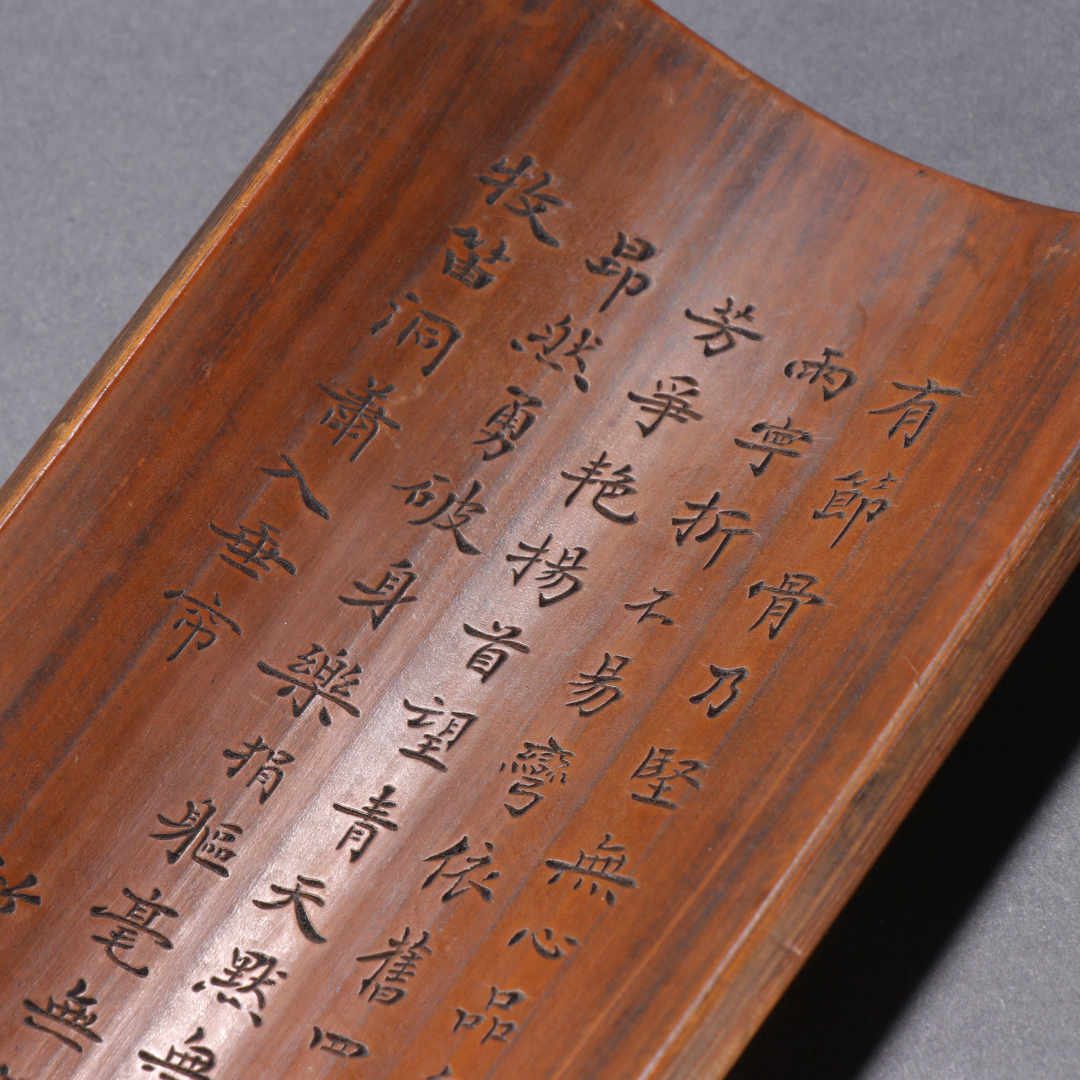 有節骨乃堅無心品
雨寧折不易彎依舊四
芳爭艷揚首望青天默無
昂然勇破身樂捐軀毫無
牧笛洞蕭入垂帘